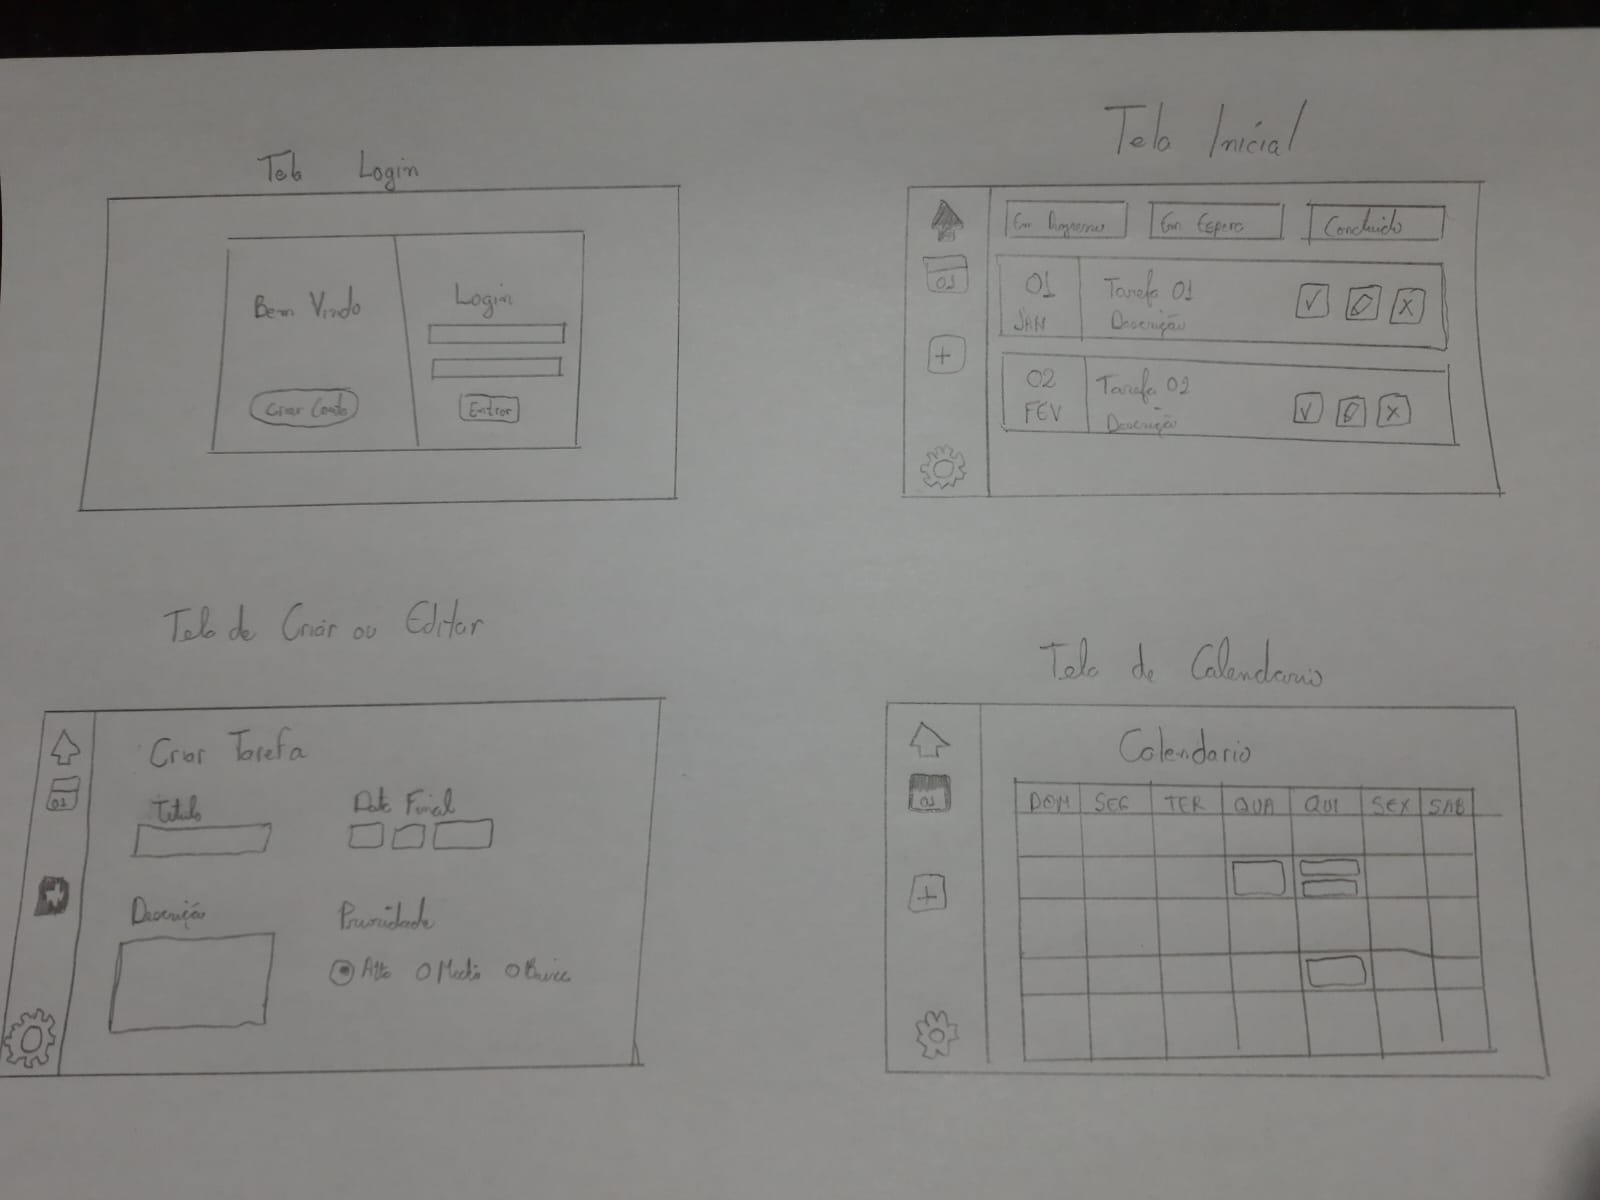 Tela Login
Bem Vindo
Criar Conta
Login
Entrar
Tela Inicial
Em Progresso
Em Espera
Concluido
01
01
JAN
Tarefa 01
Descrição
02
FEV
Tarefa 02
Descrição
Tela de Criar ou Editar
01
Criar Tarefa
Titulo
Data Final
Descrição
Prioridade
Alta Media Baixa
Tela de Calendario
01
Calendario
DOM SEG TER QUA QUI SEX SAB